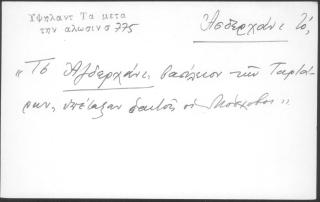 Υψηλαντ Τα μετα
την αλωσιν σ 775
Ἀσδερχάν: Τό,
"Τὸ Ἀζδερχάνι, βασίλειον τῶν Ταρτά-
ρων, ὑπέταξαν ἑαυτοῖς οἱ Μόσχοβοι",